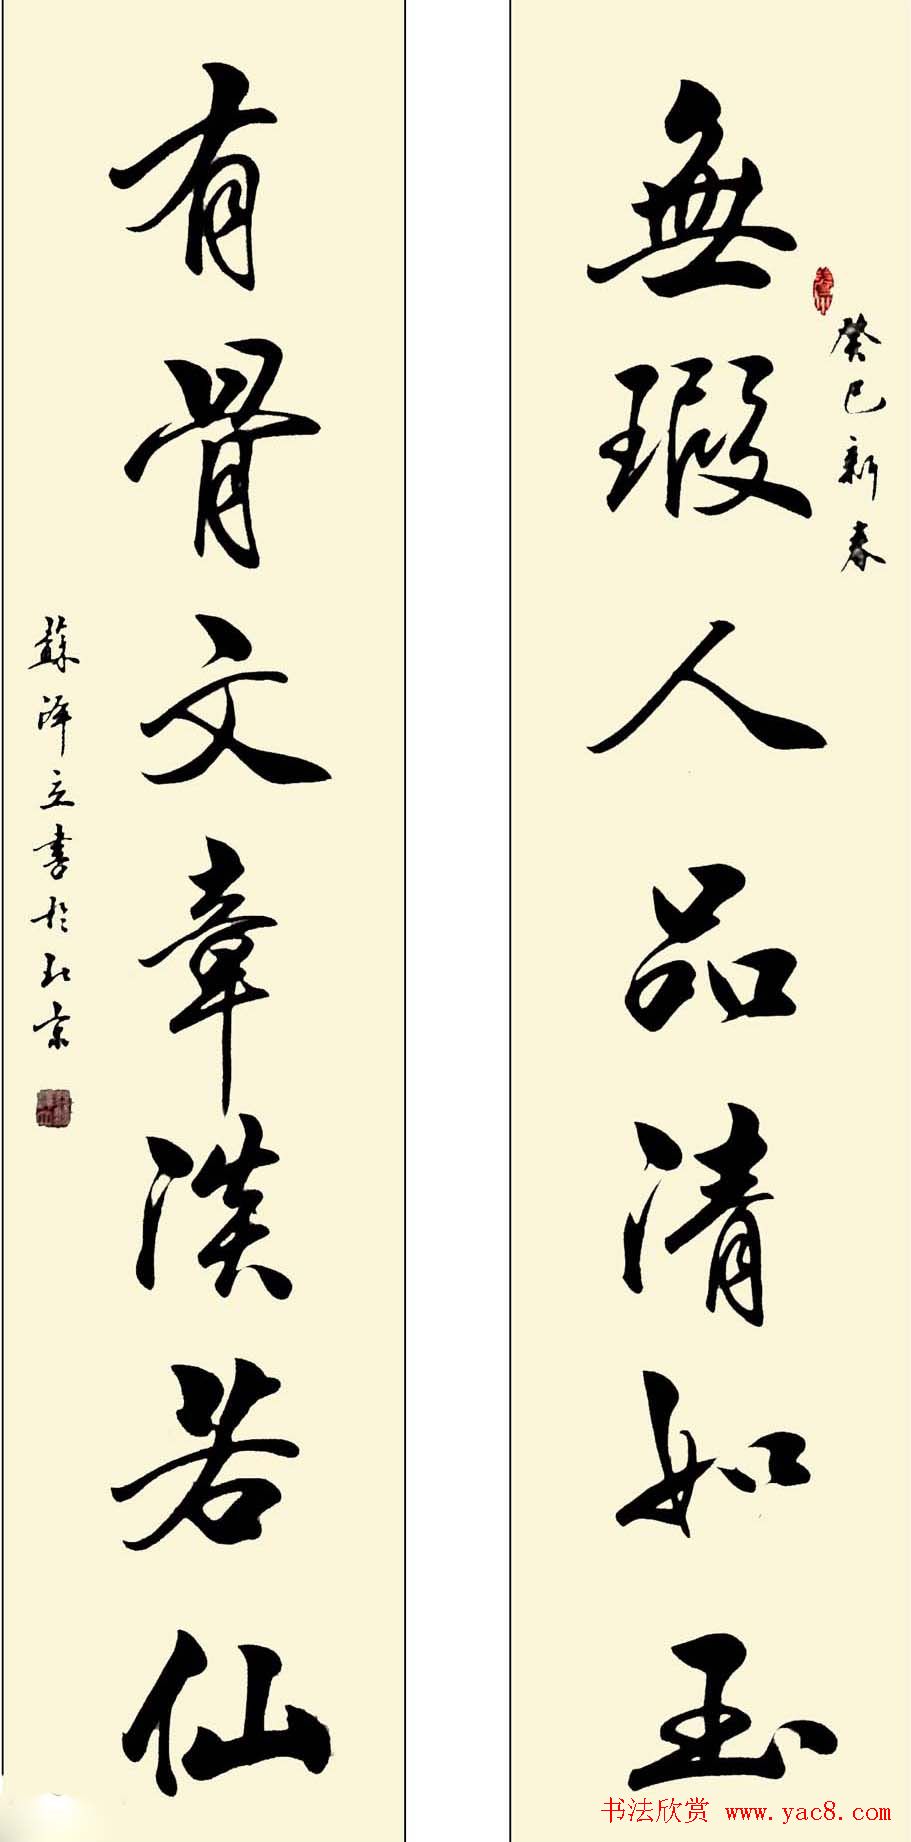 無瑕人品清如玉
癸巳新春
有骨文章淡若仙
蘇澤立書於北京
书法欣赏 www.yac8.com